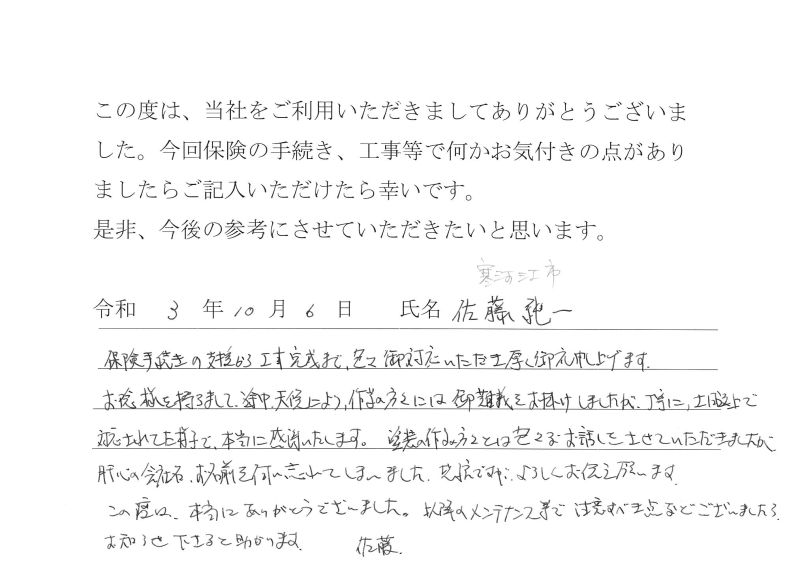 この度は、当社をご利用いただきましてありがとうございま
した。今回保険の手続き、工事等で何かお気付きの点があり
ましたらご記入いただけたら幸いです。
是非、今後の参考にさせていただきたいと思います。
寒河江市
令和 3 年 10 月 6 日 氏名 佐藤 純一
保険手続きの支援から工事完成まで、色々御対応いただき厚く御礼申し上げます。
お陰様を持ちまして、途中、天候により、作業の方々には御難儀をお掛けしましたが、丁寧に、
された様子で、本当に感謝いたします。塗装の作業の方々とは色々なお話しをさせていただきましたが、
肝心の会社名、お名前を伺い忘れてしまいました。恐縮ですが、よろしくお伝え願います。
この度は、本当にありがとうございました。以降のメンテナンス等で注意すべき点などございましたら
お知らせ下さると助かります。 佐藤.